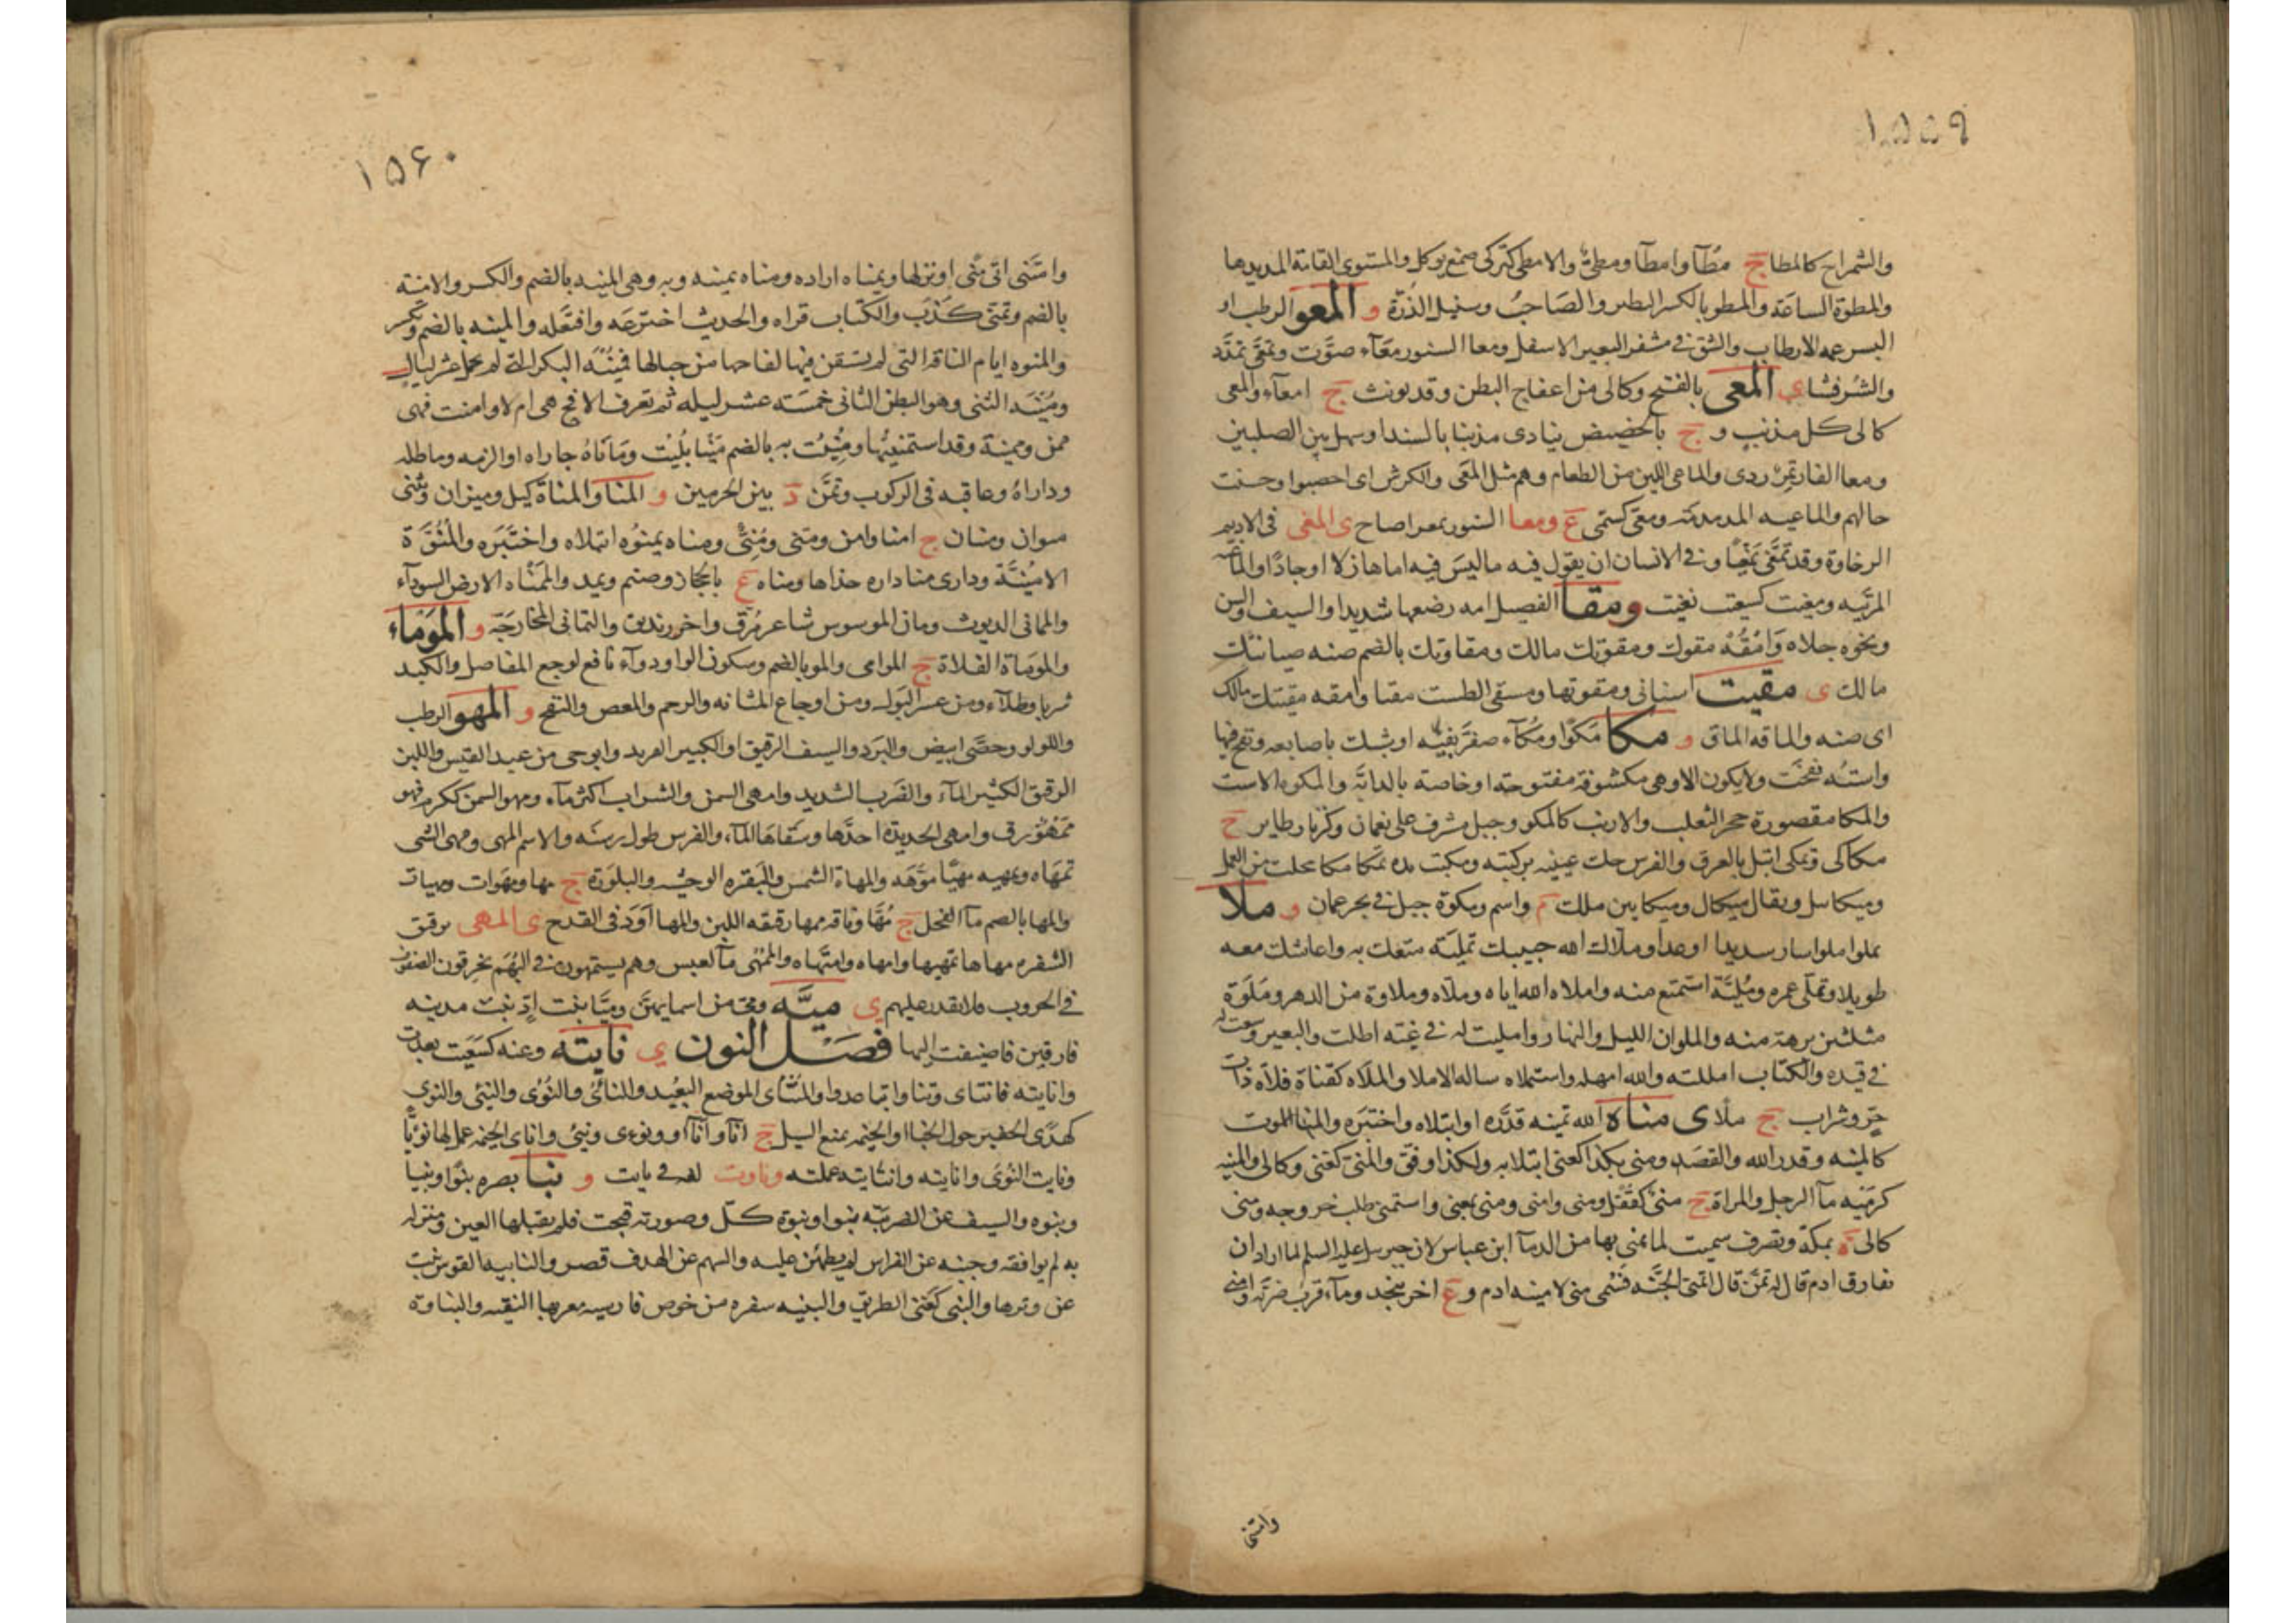 ١٥٥٩
والشمراخ كالمطا ج مطآ وامطآ ومطي والامطي كتركي صمغ يوكل والمستوي القامة المديدها
والمطوة الساعة والمطو بالكسر النظير والصاحب وسنبل الذرة و المعو الرطب او
البسر عمه الارطاب والشق في مشفر البعير الاسفل ومعا السنور معآء صوت وتمعى تمدد
والشر فشا ي المعى بالفتح وكالى من اعفاج البطن وقد يونث ج امعآء والمعى
كالى كل مذنب و ج بالحضيض ينادى مذنبا بالسند او سهل بين الصلبين
ومعا الفار تمر ردى والماعى اللين من الطعام وهم مثل المعى والكرش اى اخصبوا وحسنت
حالهم والماعيه المدمدمة ومعى كسمى ع ومغا السنور بمعر اصاح ى المغى فى الاديم
الرخاوة وقد تمغى تمغيا وفى الانسان ان يقول فيه ماليس فيه اما هازلا او جادا والماغيه
المريبه ومغيت كسعيت نغيت ومقا الفصيل امه رضعها شديدا والسيف والسن
ونحوه جلاه وامقه مقوك ومقوتك مالك ومقاوتك بالضم صنه صيانتك
مالك ى مقيت اسنانى ومقوتها ومسقى الطست مقيا وامقه مقيتك مالك
اى صنه والماقه الماق و مكا مكوا ومكآء صفر بفيه او شبك باصابعه ونفخ فيها
واسته نفخت ولا يكون الا وهى مكشوفة مفتوحة او خاصة بالدابة والمكوه الاست
والمكا مقصورة جحر الثعلب والارنب كالمكو وجبل مشرف على نعمان وكزنار طاير ج
مكاكى وتمكى ابتل بالعرق والفرس حك عينه بركبته ومكيت يده تمكا مكا مجلت من العمل
وميكايل ويقال ميكال وميكايين ملك م واسم ومكوة جبل فى بحر عمان و ملا
يملوا ملوا سار سديدا او عدا وملاك الله حبيبك تملية متعك به واعاشك معه
طويلا وتملى عمره ومليه استمتع منه واملاه الله اياه وملاه وملاوة من الدهر وملوة
مثلثين برهة منه والملوان الليل والنهار وامليت له فى غيه اطلت والبعير وسعت له
فى قيده والكتاب امللته والله امهله واستملاه ساله الاملا والملاه كقناة فلاة ذات
حر وشراب ج ملا ى مناه الله تمينه قدره او ابتلاه واختبره والمنا الموت
كالمنيه وقدر الله والقصد ومنى بكذا كعنى ابتلا به ولكذا وفق والمنى كغنى وكالى والمنيه
كرمية مآ الرجل والمراة ج منى كقفل ومنى وامنى ومنى بمعنى واستمنى طلب خروجه ومنى
كالى ة بمكة وتصرف سميت لما يمنى بها من الدمآ ابن عباس لان جبريل عليه السلم لما اراد ان
يفارق ادم قال له تمن قال اتمنى الجنة فسمى منى لامنية ادم و ع اخر بنجد ومآء قرب ضرية وامنى
وامتنى
١٥۶٠
وامتنى اتى منى او نزلها ويمناه اراده ومناه يمينه وبه وهى المنيه بالضم والكسر والامنيه
بالضم وتمنى كذب والكتاب قراه والحديث اخترعه وافتعله والمنيه بالضم وتكسر
والمنوه ايام الناقة التى لم تستقن فيها لقاحها من حيالها فمنية البكر التى لم تحمل عشر ليال
ومنية الثنى وهو البطن الثانى خمسة عشر ليله ثم تعرف الاقح هى ام لا وامنت فهى
ممن وممنية وقد استمنيتها ومنيت به بالضم منيا بليت ومآناه جاراه او الزمه وماطله
وداراه وعاقبه فى الركوب وتمن د بين الحرمين و المنا والمناة كيل وميزان ويثنى
منوان ومنيان ج امنا وامن ومنى ومنى ومناه يمنوه ابتلاه واختبره والمنوة
الامنية ودارى منا داره حذاها ومناه ع بالحجاز وصنم ويمد والممناه الارض السودآء
والمانى الديوث ومانى الموسوس شاعر مرق واخر زنديق والتمانى المخارجة و الموماء
والموماة الفلاة ج الموامى والمو بالضم وسكون الواو دوآء نافع لوجع المفاصل والكبد
شربا وطلآء ومن عسر البول ومن اوجاع المثانه والرحم والمعص والنفخ و المهو الرطب
واللولو وحصى ابيض والبرد والسيف الرقيق او الكبير الفريد وابو حى من عبد القيس واللبن
الرقيق الكثير المآء والضرب الشديد وامهى السمن والشراب اكثر مآءه ومهو السمن ككرم فهو
ممهو رق وامهى الحديدة احدها وسقاها المآء والفرس طول رسنه والاسم المهى ومهى الشى
تمهاه ويمهيه مهيا موهه والمهاة الشمس والبقره الوحشيه والبلورة ج مها ومهوات ومهيات
والمها بالضم مآ الفحل ج مها وناقه ممها رقيقه اللبن والمها اود فى القدح ى المهى ترقيق
الشفره مهاها تمهيها وامهاه وامتهاه والممهى مآ لعبس وهم يستمهون فى البهم يخرقون الصفوف
فى الحروب فلا يقدر عليهم ى ميه ومى من اسمايهن وميا بنت اد بنت مدينه
فارقين فاضيفت اليها فصل النون ى نايته وعنه كسعيت بعدت
وانايته فانتاى وتناوا تباعدوا والمنتاى الموضع البعيد والنائى والنؤى والنئى والنوى
كهدى الحفير حول الخبا او الخيمه يمنع السيل ج انآ وانآا ونوءى ونئى واناى الخيمه عمل لها نؤيا
ونايت النوى وانايته وانتايته عملته وناوت لغه فى نايت و نبا بصره نبوا ونبيا
ونبوه والسيف عن الضريبه نبوا ونبوة كل وصورته قبحت فلم يقبلها العين ومنزله
به لم يوافقه وجنبه عن الفراش لم يطمئن عليه والسهم عن الهدف قصر والنابيه القوس نبت
عن وترها والنبى كغنى الطريق والنبيه سفره من خوص فارسيه معربها النفيه والنباوة